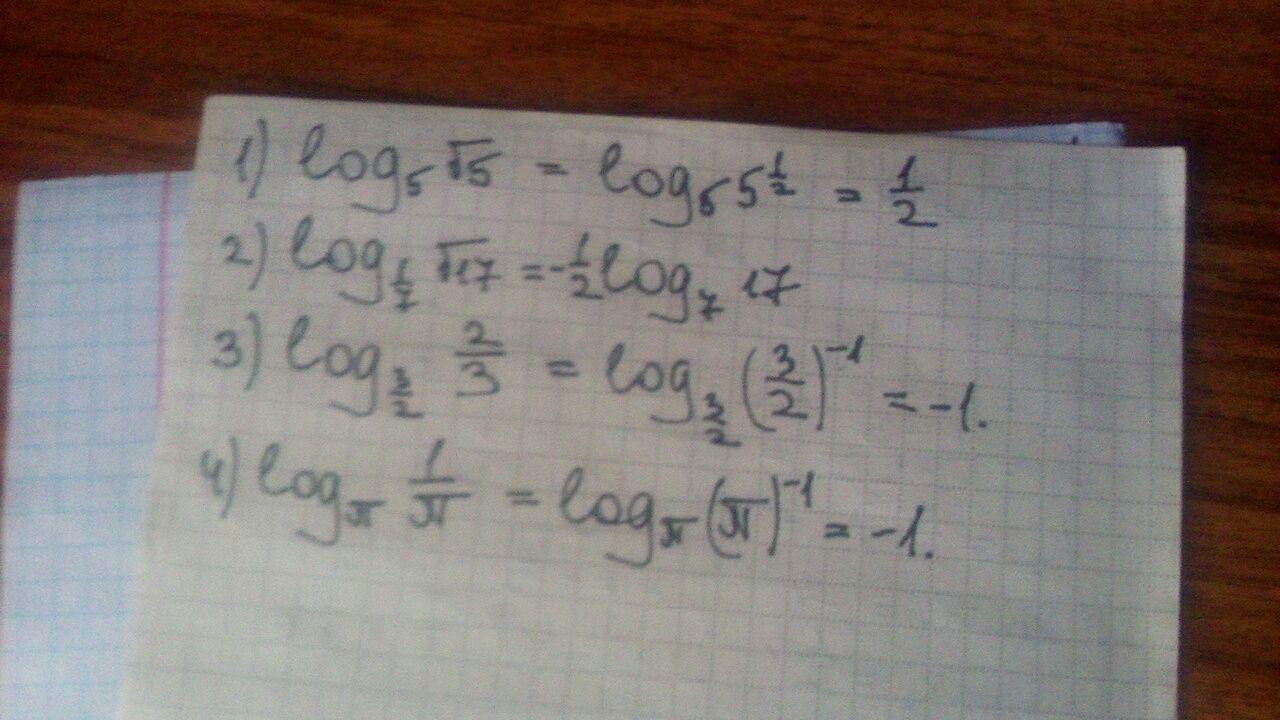 1) log₅ √5 = log₅ 5^(1/2) = 1/2
2) log_(1/7) √17 = -1/2 log₇ 17
3) log_(3/2) 2/3 = log_(3/2) (3/2)⁻¹ = -1.
4) log_π 1/π = log_π (π)⁻¹ = -1.